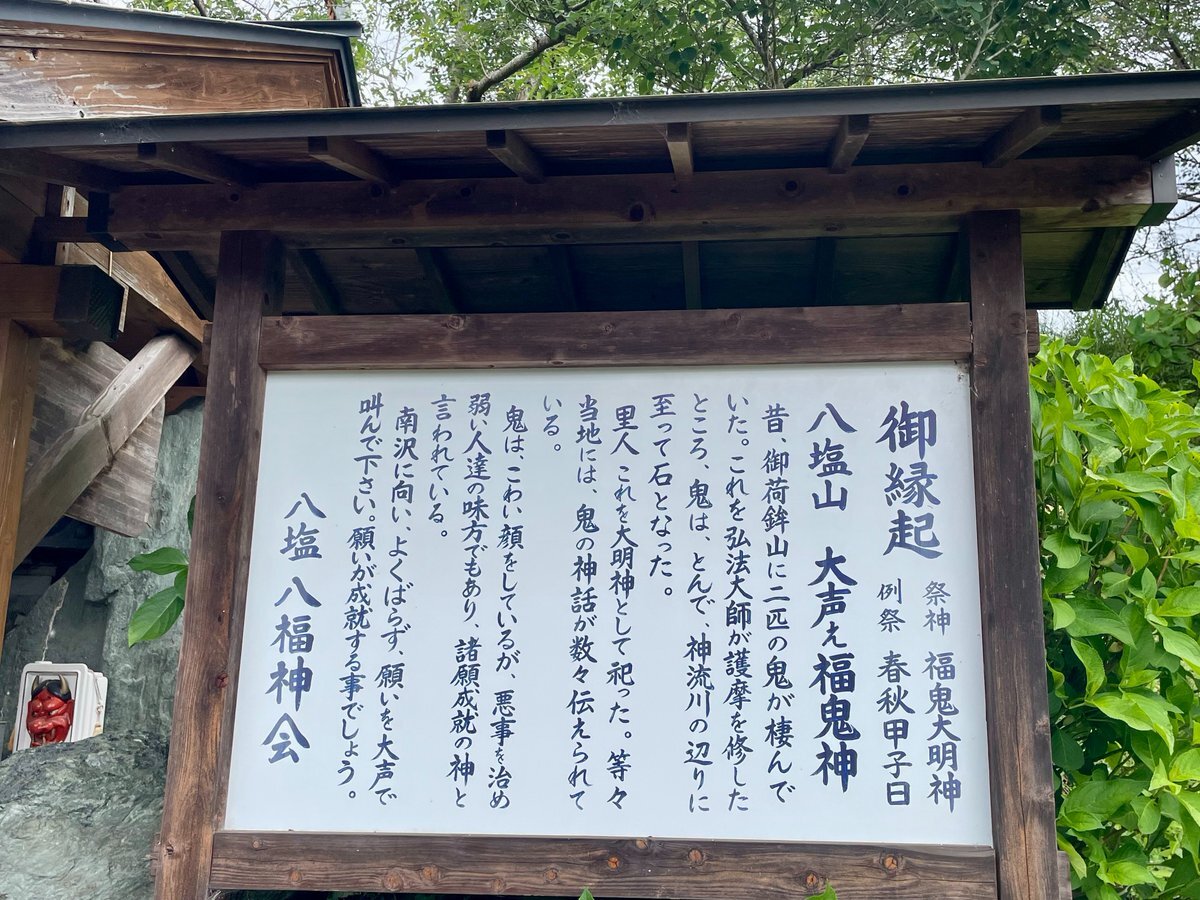 御縁起
祭神 福鬼大明神
例祭 春秋甲子日
八塩山 大声え福鬼神
昔、御荷鉾山に二匹の鬼が棲んで
いた。これを弘法大師が護摩を修した
ところ、鬼は、とんで、神流川の辺りに
至って石となった。
里人これを大明神として祀った。等々
当地には、鬼の神話が数々伝えられて
いる。
鬼は、こわい顔をしているが、悪事を治め
弱い人達の味方でもあり、諸願成就の神と
言われている。
南沢に向い、よくばらず、願いを大声で
叫んで下さい。願いが成就する事でしょう。
八塩 八福神会